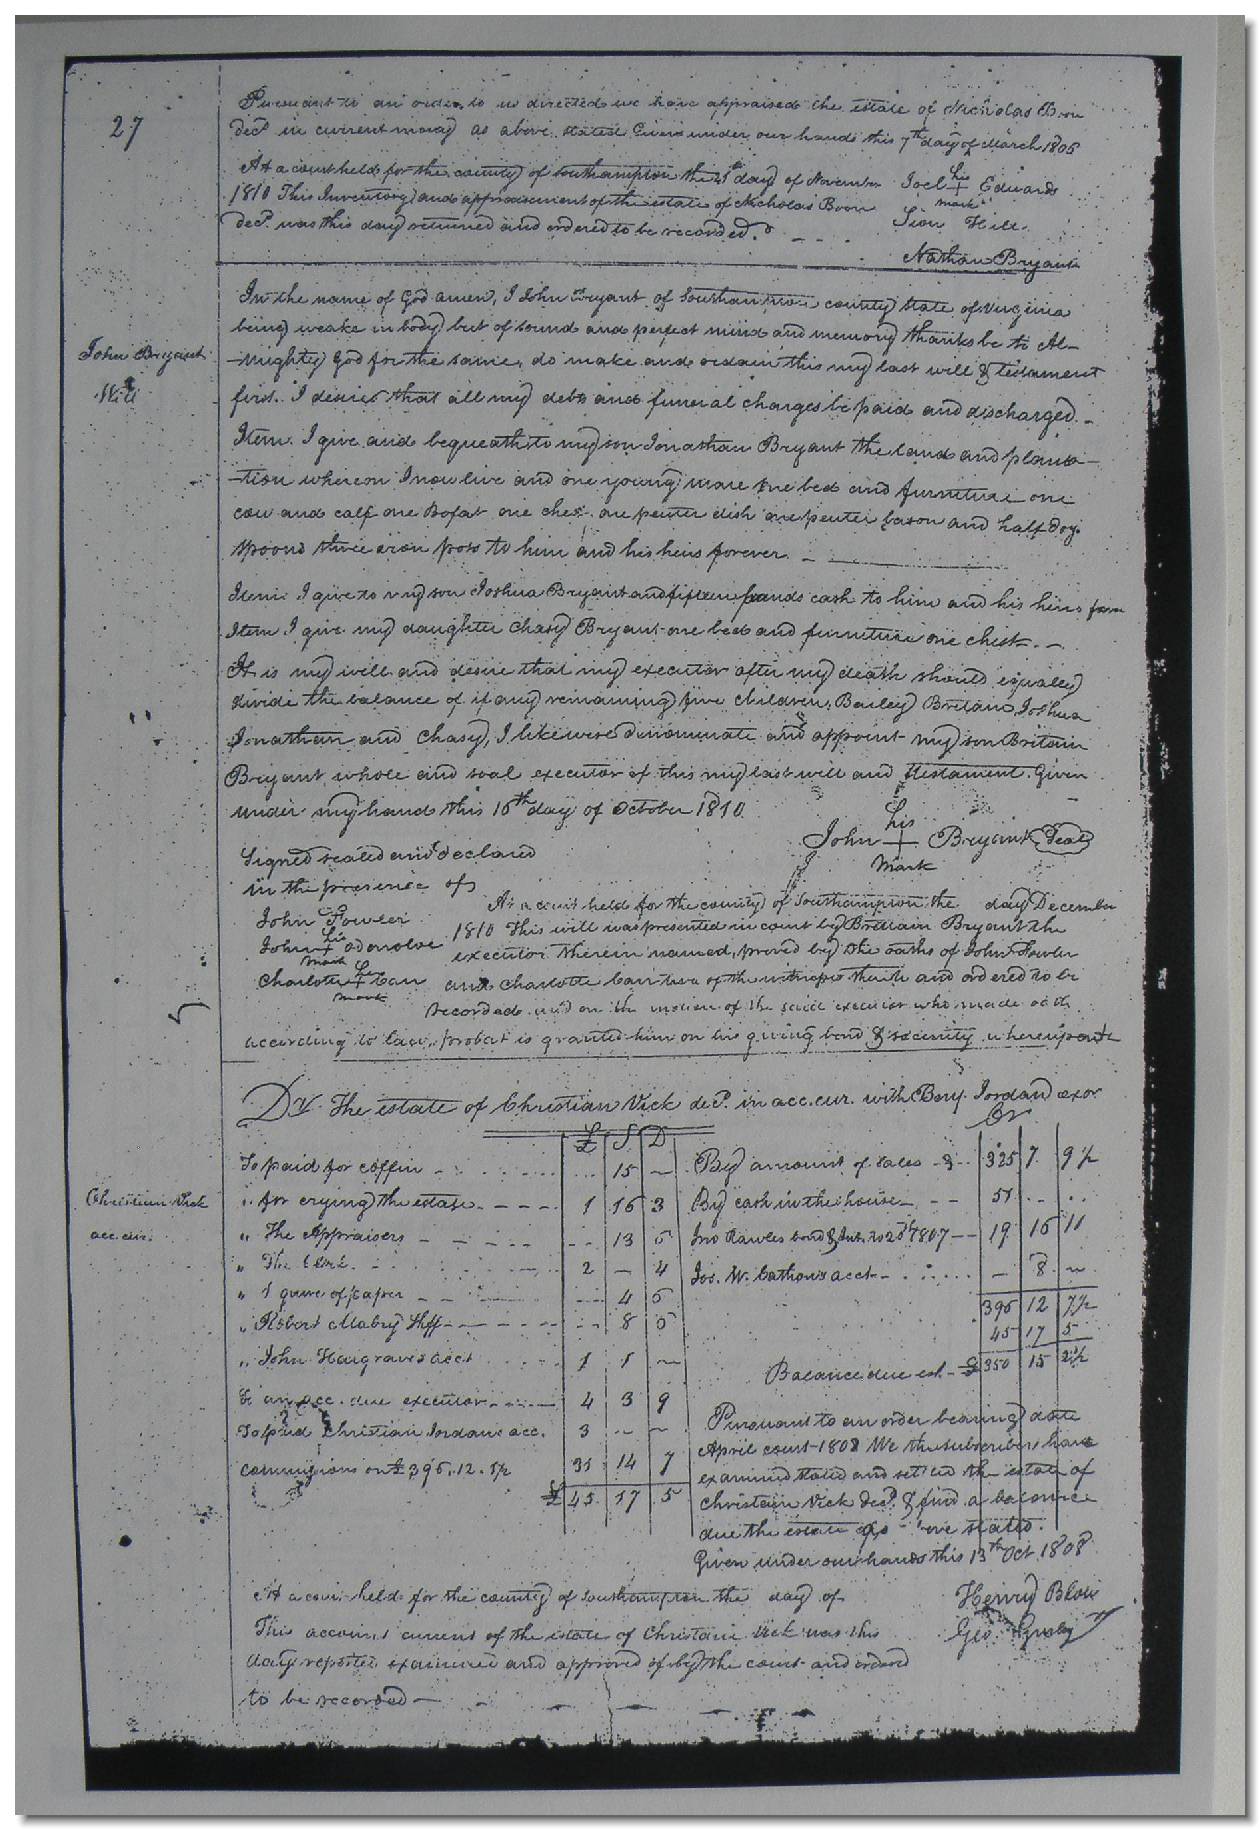 27
Pursuant to an order to us directed we have appraised the estate of Nicholas Boon
decd. in current money as above stated Given under our hands this 7th day of March 1806
At a court held for the county of Southampton the day of November
1810 This Inventory and appraisement of the estate of Nicholas Boon
decd. was this day returned and ordered to be recorded.
Joel his + mark Edwards
Sion Hill
Nathan Bryant
John Bryant
Will
In the name of God amen, I John Bryant of Southampton county state of Virginia
being weake in body but of sound and perfect mind and memory thanks be to Al-
-mighty God for the same, do make and ordain this my last will & testament
first. I desire that all my debts and funeral charges be paid and discharged. -
Item. I give and bequeath to my son Jonathan Bryant the land and planta-
-tion whereon I now live and one young mare one bed and furniture one
cow and calf one Bofat one chest one pewter dish one pewter bason and half doz.
spoons three iron pots to him and his heirs forever. -
Item. I give to my son Joshua Bryant and fifteen pounds cash to him and his heirs
Item I give my daughter Chasy Bryant one bed and furniture one chest. -
It is my will and desire that my executor after my death should equally
divide the balance of if any remaining five children, Bailey Britain Joshua
Jonathan and Chasy, I likewise dinominate and appoint my son Britain
Bryant whole and soal executor of this my last will and testament. Given
under my hand this 16th day of October 1810.
John his + mark Bryant Seal
Signed sealed and declared
in the presence of
John Fowler
John his + mark
Charlotte + mark
At a court held for the county of Southampton the day December
1810 This will was presented in court by Brittain Bryant the
executor therein named, proved by the oaths of John Fowler
and Charlotte two of the witnesses thereto and ordered to be
recorded and on the motion of the said executor who made oath
according to law, probat is granted him on his giving bond & security whereupon
Dr. The estate of Christian Vick decd. in acc. cur. with Benj. Jordan exor
Cr
Christian Vick
acc. cur.
£ S D
To paid for coffin 15 -
" for crying the estate 1 16 3
" The Appraisers 13 6
" The Clerk 2 - 4
" 1 quire of paper 4 6
" Robert Mabry Shff 8 6
" John Hargraves acct 1 1 -
To an acc. due executor 4 3 9
To paid Christian Jordans acc. 3 - -
commissions on £396..12.. 31 14 7
£ 45 17 5
By amount of sales 325 7 9½
By cash in the house 51
Jno Rawles bond & Int. 1807 19 16 11
Jos. W. acct - 8 -
396 12 7½
45 17 5
Balance due est. £350 15 2½
Pursuant to an order bearing date
April court 1808 We the subscribers have
examined stated and settled the estate of
Christian Vick decd. & find a balance
due the estate as above stated.
Given under our hands this 13th Oct. 1808
Henry Blow
Geo. Gurley
At a court held for the county of Southampton the day of
This account current of the estate of Christian Vick was this
day reported examined and approved of by the court and ordered
to be recorded -